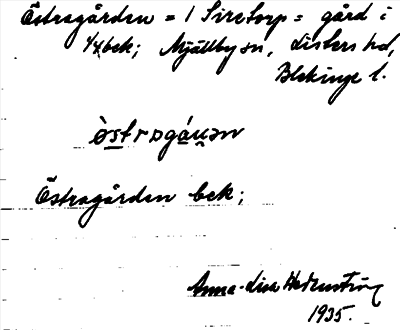 Östragården = 1 Siretorp = gård i
1/4 bek; Mjällby sn, Listers hd,
Blekinge l.
òstragáu̯ən
Östragården bek;
Anna-Lisa Hedenström
1935.